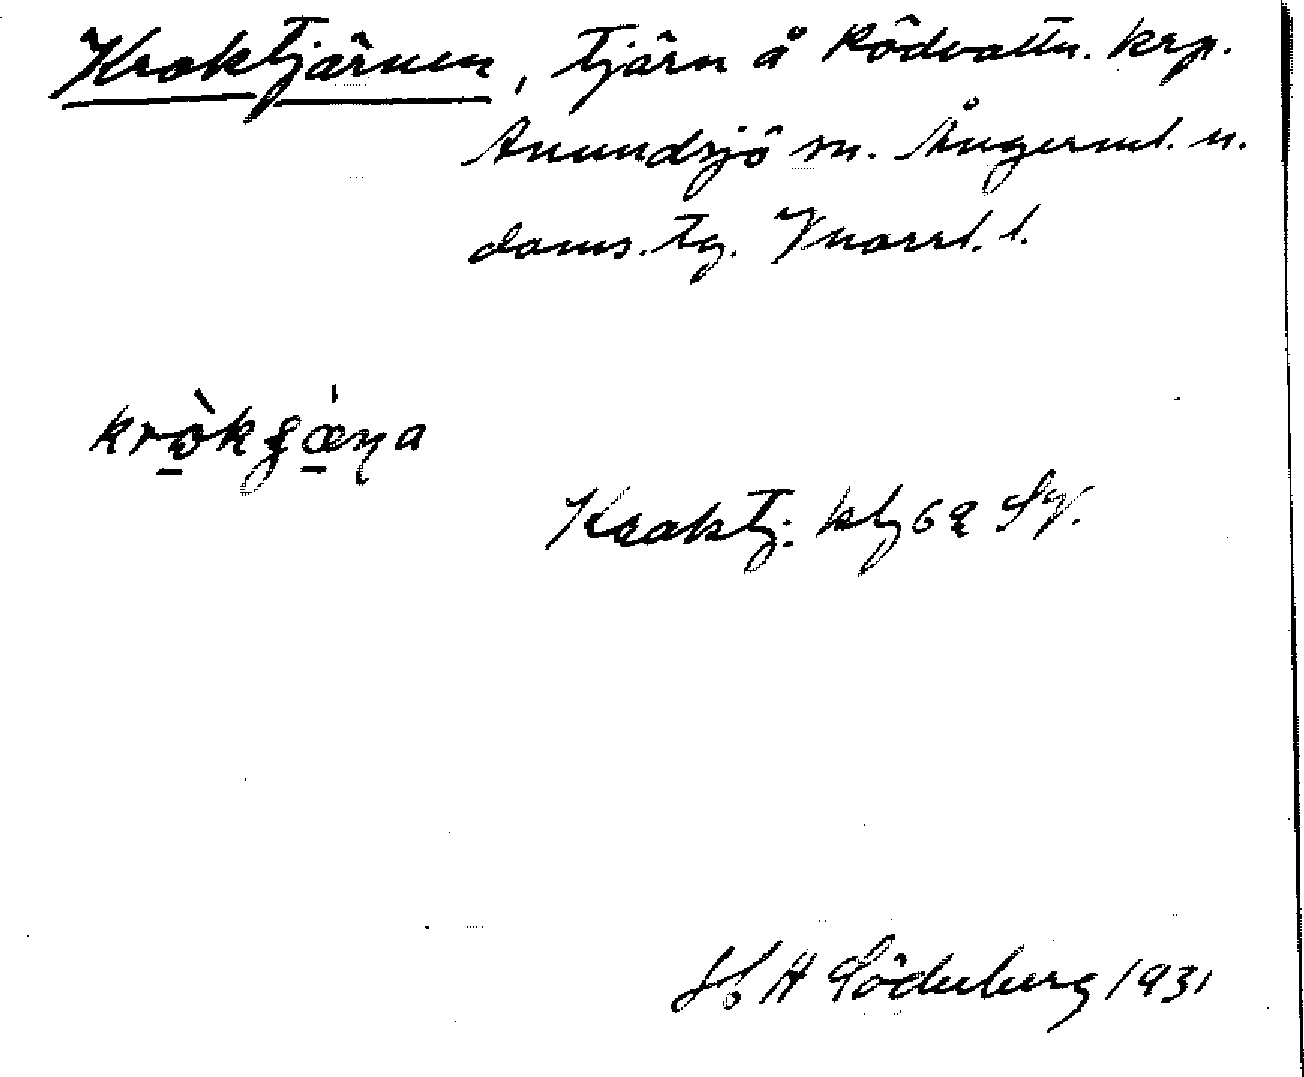 Kroktjärnen, tjärn å Rödvattn. krp.
Anundsjö sn. Ångerml. n.
doms. tg. Vnorrl. l.
Kroktj: kbl 62 SV.
H A Söderberg 1931